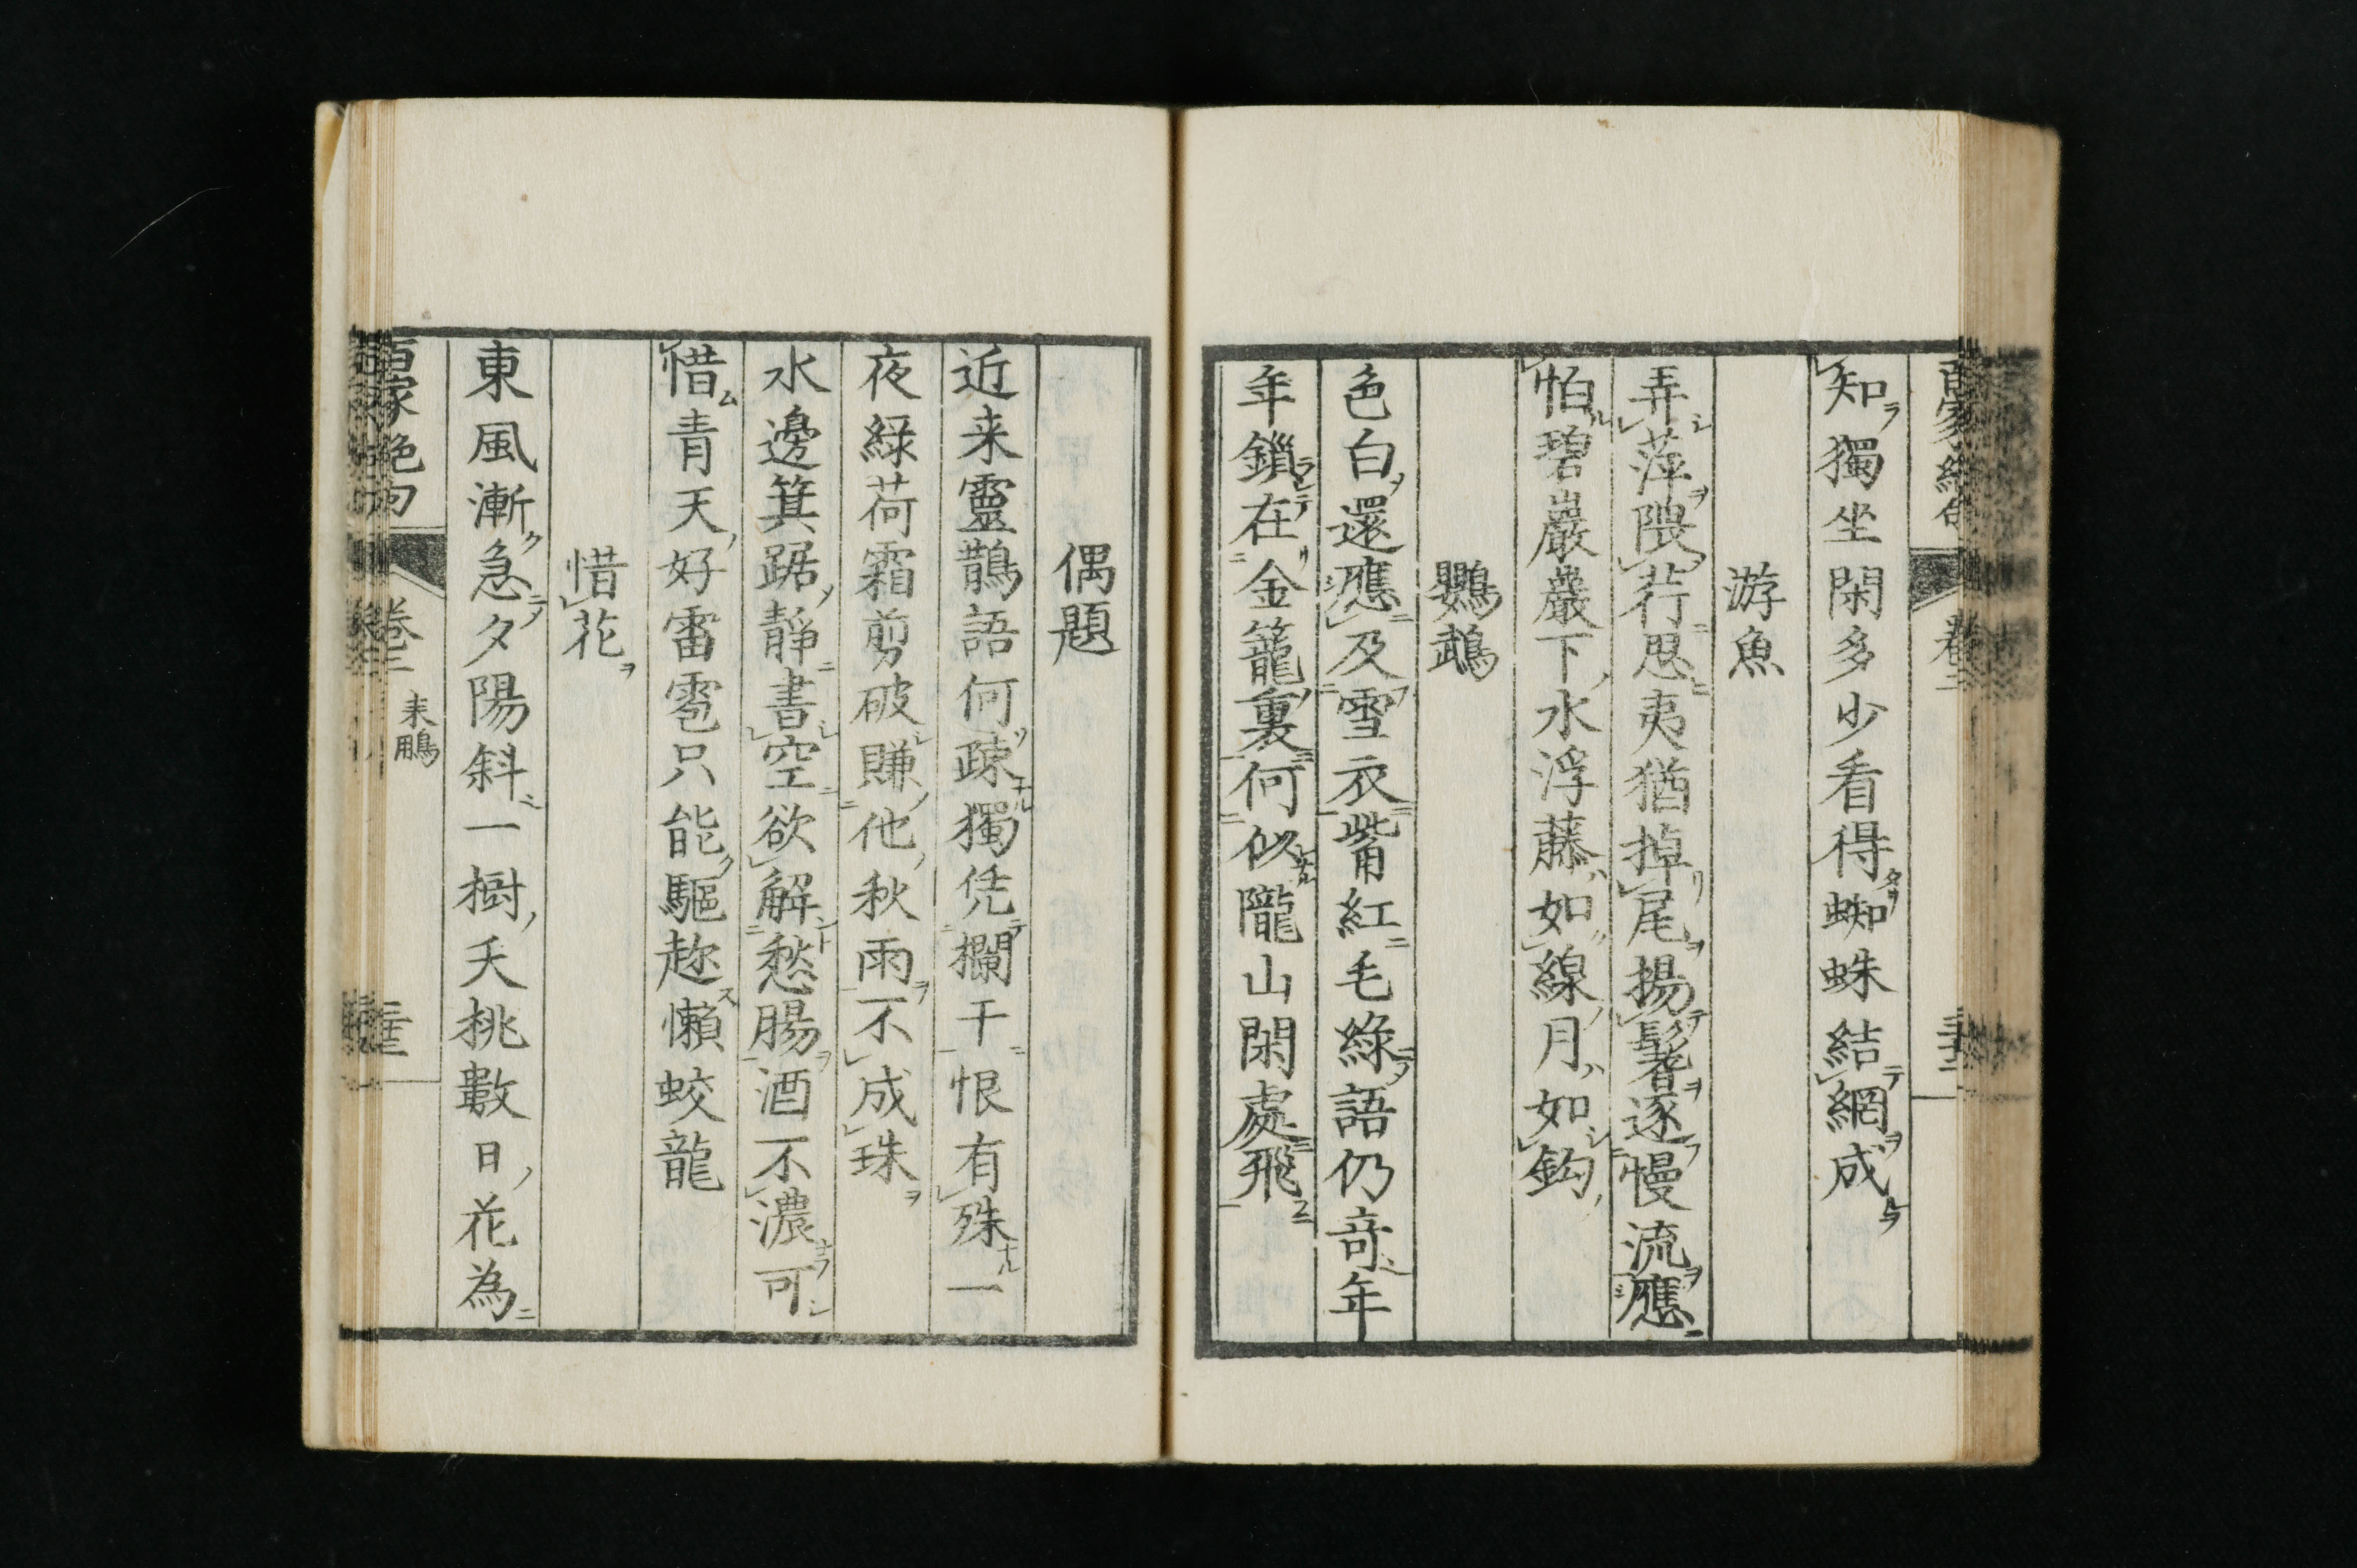 百家絶句 卷
知獨坐閑多少看得蜘蛛結網成
游魚
弄萍隈荇思夷猶掉尾揚鬐逐慢流應
怕碧巖巖下水浮藤如線月如鈎
鸚鵡
色白還應及雪衣觜紅毛綠語仍奇年
年鎖在金籠裏何似隴山閑處飛
偶題
近来靈鵲語何疎獨凭欄干恨有殊一
夜綠荷霜剪破賺他秋雨不成珠
水邊箕踞靜書空欲解愁腸酒不濃可
惜青天好雷雹只能驅趂懶蛟龍
惜花
東風漸急夕陽斜一樹夭桃數日花為
百家絶句 卷三 来鵬